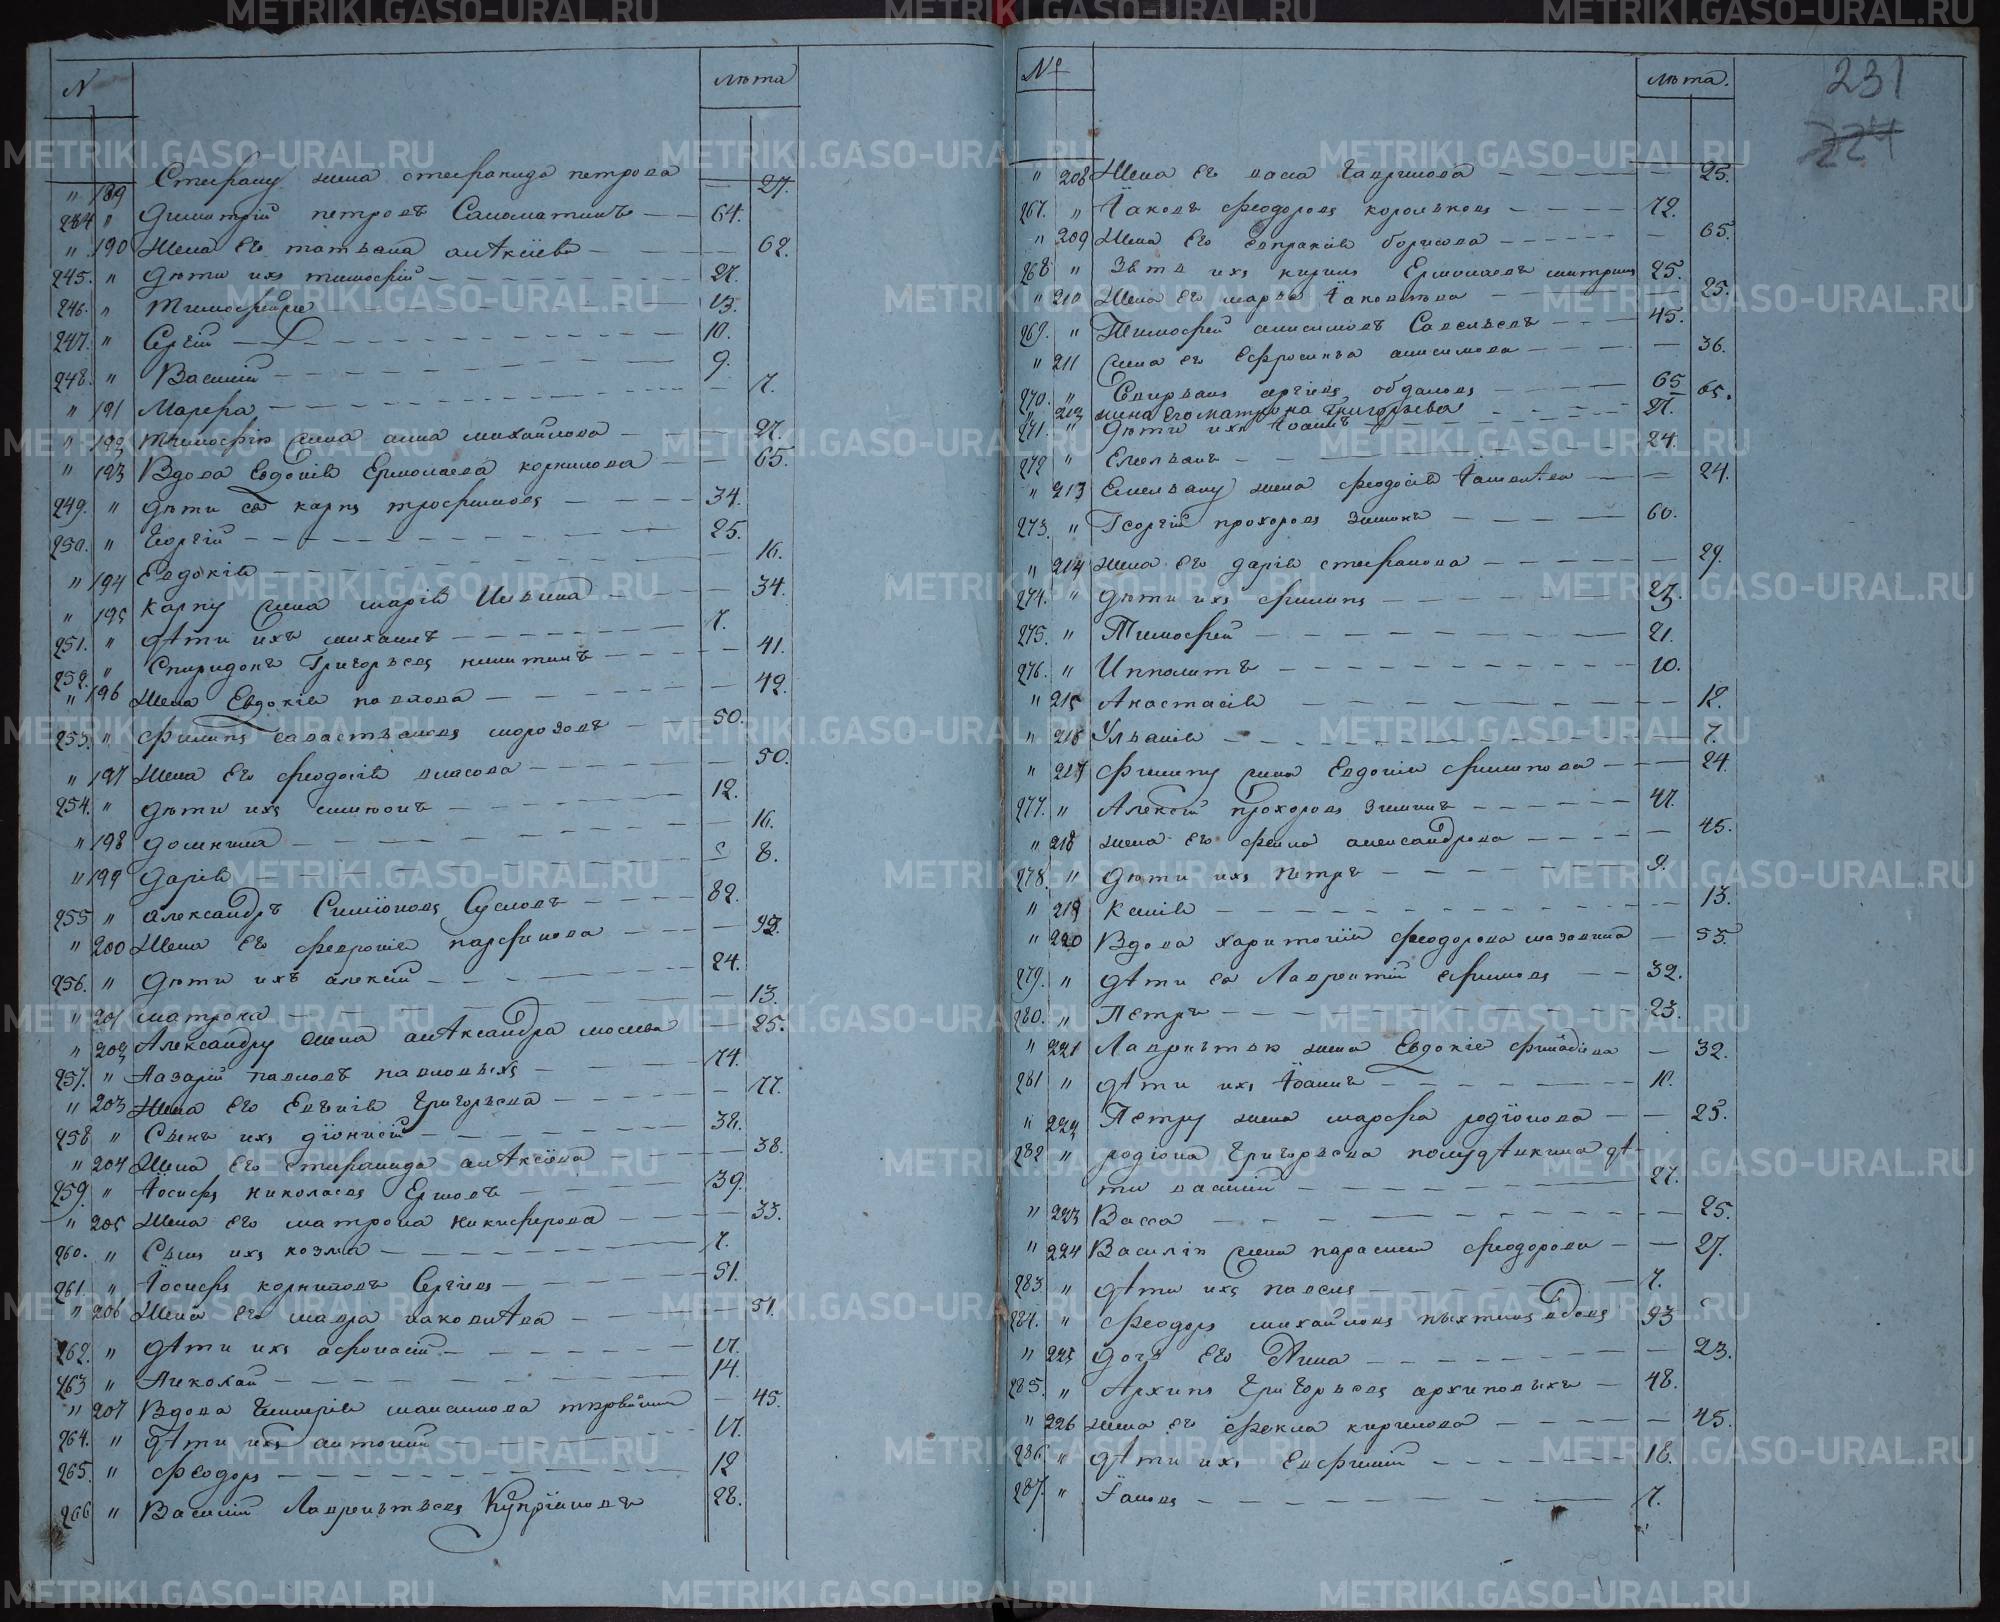 N лѣта
" 189 Стефану жена стефанида петрова — 27.
244 " Димитрій петровъ Саломатинъ — 64.
" 190 Жена Его татьяна алѣксіева — 62.
245. " дѣти ихъ тимофѣй — 27.
246. " Тимофей — 13.
247. " Сергій — 10.
248. " Василій — 9.
" 191 Марфа — 7.
" 192 тимофѣю жена анна михайлова — 27.
" 193 Вдова Евдокія Ермолаева корнилова — 65.
249. " дѣти ея карпъ трофимовъ — 34.
250. " Георгій — 25.
" 194 Евдокія — 16.
" 195 Карпу жена марія Ильина — 34.
251. " дѣти ихъ михаилъ — 7.
252. " Спиридонъ Григорьевъ никитинъ — 41.
" 196 Жена Евдокія павлова — 42.
253. " филипъ савастьяновъ морозовъ — 50.
" 197 Жена Его феодосія власова — 50.
254. " дѣти ихъ симионъ — 12.
" 198 домникиа — 16.
" 199 дарія — 8.
255 " александръ Симіоновъ Сусловъ — 82.
" 200 Жена Его февронія парфинова —
256. " дѣти ихъ алексій — 24.
" 201 матрона — 13.
" 202 Александру жена алѣксандра — 25.
257. " Назарій павловъ павловыхъ — 74.
" 203 Жена Его Евгенія григорьева — 77.
258 " Сынъ ихъ діонисій — 38.
" 204 Жена Его стефанида алѣксіева — 38.
259. " Іосифъ николаевъ Ершовъ — 39.
" 205 Жена Его матрона никифорова — 33.
260. " Сынъ ихъ козма — 7.
261. " Іосифъ корниловъ Сергіевъ — 51.
" 206 Жена Его мавра иаковлѣва — 51.
262. " дѣти ихъ афонасій — 17.
263 " Николай — 14.
" 207 Вдова Гликерія максимова — 45.
264. " дѣти ихъ антоній — 17.
265. " феодоръ — 12
266 " Василій Лаврентьевъ Купріяновъ 28.
№ лѣта.
231
224
" 208 Жена Его васса Гаврилова — 25.
267. " Іаковъ феодоровъ корольковъ — 72.
" 209 Жена Его Евпраксія борисова — 65.
268 " Зять ихъ кирилъ Ермолаевъ 25.
" 210 Жена Его марья Іаковлѣва — 25.
269. " Тимофей анисимовъ Савельевъ — 45.
" 211 жена его Ефросинья анисимова — 36.
270. " сергіевъ — 65
" 212 жена его матрона Григорьева — 65.
271. " дѣти ихъ Іоаннъ — 27.
272 " Емельянъ — 24.
" 213 Емельяну жена феодосія Іаковлѣва — 24.
273. " Георгій прохоровъ Зиминъ — 60.
" 214 жена Его дарія стефанова — 29.
274. " дѣти ихъ филипъ — 23.
275. " Тимофей — 21.
276. " Ипполитъ — 10.
" 215 Анастасія — 12.
" 216 Ульянія — 7.
" 217 филипу жена Евдокія филипова — 24.
277. " Алексій прохоровъ Зиминъ — 47.
" 218 жена Его феклa александрова — 45.
278. " дѣти ихъ петръ — 9.
" 219 Ксенія — 13.
" 220 Вдова харитонія феодорова — 53.
279. " дѣти ея Лаврентій Ефимовъ — 32.
280. " Петръ — 23.
" 221 Лаврентью жена Евдокія — 32.
281 " дѣти ихъ Іоаннъ —
" 222 Петру жена марфа родіонова — 25.
282 " родіона Григорьева полудѣнкина дѣ-
ти василій — 27.
" 223 Васса — 25.
" 224 Василію жена парасковья феодорова — 27.
283 " дѣти ихъ павелъ — 7.
284. " феодоръ михайловъ пыхтинъ вдовъ 93
" 225 дочь Его Анна — 23.
285. " Архипъ Григорьевъ архиповыхъ — 48.
" 226 жена Его фекла кирилова — 45.
286. " дѣти ихъ Евфимій — 18.
287. " Іаковъ — 7.